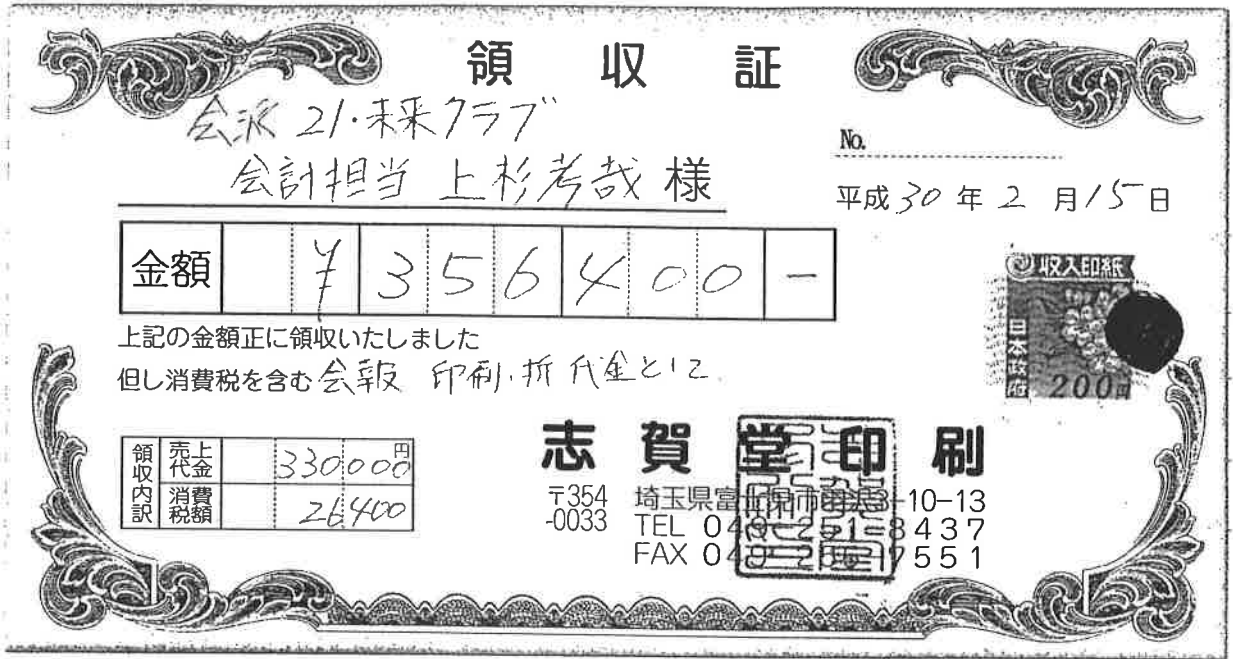 領収証
会派 21・未来クラブ
会計担当 上杉考哉 様
No.
平成 30 年 2 月 15 日
金額 ¥ 356400 -
上記の金額正に領収いたしました
但し消費税を含む 会報 印刷・折 代金として
収入印紙
日本政府
200円
領収内訳
売上代金 330,000円
消費税額 26,400
志賀堂印刷
〒354-0033 埼玉県富士見市 3-10-13
TEL 049-251-8437
FAX 049 7551